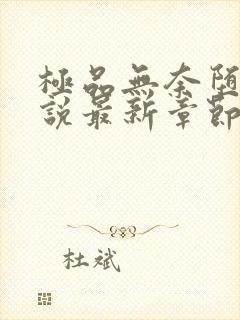 極品無奈堕
説最新章節
杜斌